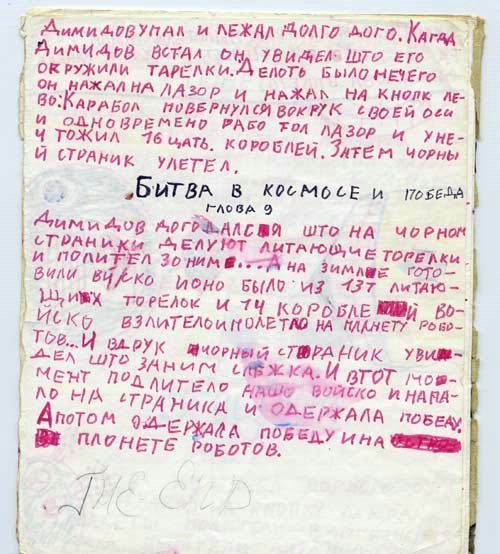 ДИМИДОВ УПАЛ И ЛЕЖАЛ ДОЛГО ДОГО. КАГДА
ДИМИДОВ ВСТАЛ ОН УВИДЕЛ ШТО ЕГО
ОКРУЖИЛИ ТАРЕЛКИ. ДЕЛОТЬ БЫЛО НЕЧЕГО
ОН НАЖАЛ НА ЛАЗОР И НАЖАЛ НА КНОПК ЛЕ-
ВО. КАРАБОЛ ПОВЕРНУЛСЯ ВОКРУК СВОЕЙ ОСИ
И ОДНОВРЕМЕНО РАБОТОЛ ЛАЗОР И УНЕ-
ЧТОЖИЛ 16ЦАТЬ. КОРОБЛЕЙ. ЗАТЕМ ЧОРНЫ
Й СТРАНИК УЛЕТЕЛ.
БИТВА В КОСМОСЕ И ПОБЕДА
ГЛОВА 9
ДИМИДОВ ДОГОДАЛСЯ ШТО НА ЧОРНОМ
СТРАНИКИ ДЕЛУЮТ ЛИТАЮЩИЕ ТОРЕЛКИ
И ПОЛИТЕЛ ЗО НИМ... А НА ЗИМЛЕ ГОТО-
ВИЛИ ВИСКО И ОНО БЫЛО ИЗ 13Т ЛИТАЮ-
ЩИХ ТОРЕЛОК И 14 КОРОБЛЕ Й ВО-
ЙСКО ВЗЛИТЕЛО И ПОЛЕТЛО НА ПЛАНЕТУ РОБО-
ТОВ... И ВДРУК ЧОРНЫЙ СТРАНИК УВИ-
ДЕЛ ШТО ЗАНИМ СЛЕЖКА. И ВТОТ МО-
МЕНТ ПОДЛИТЕЛО НАШО ВОЙСКО И НАПА-
ЛО НА СТРАНИКА И ОДЕРЖАЛА ПОБЕДУ.
А ПОТОМ ОДЕРЖАЛА ПОБЕДУ И НА
ПЛОНЕТЕ РОБОТОВ.
THE END